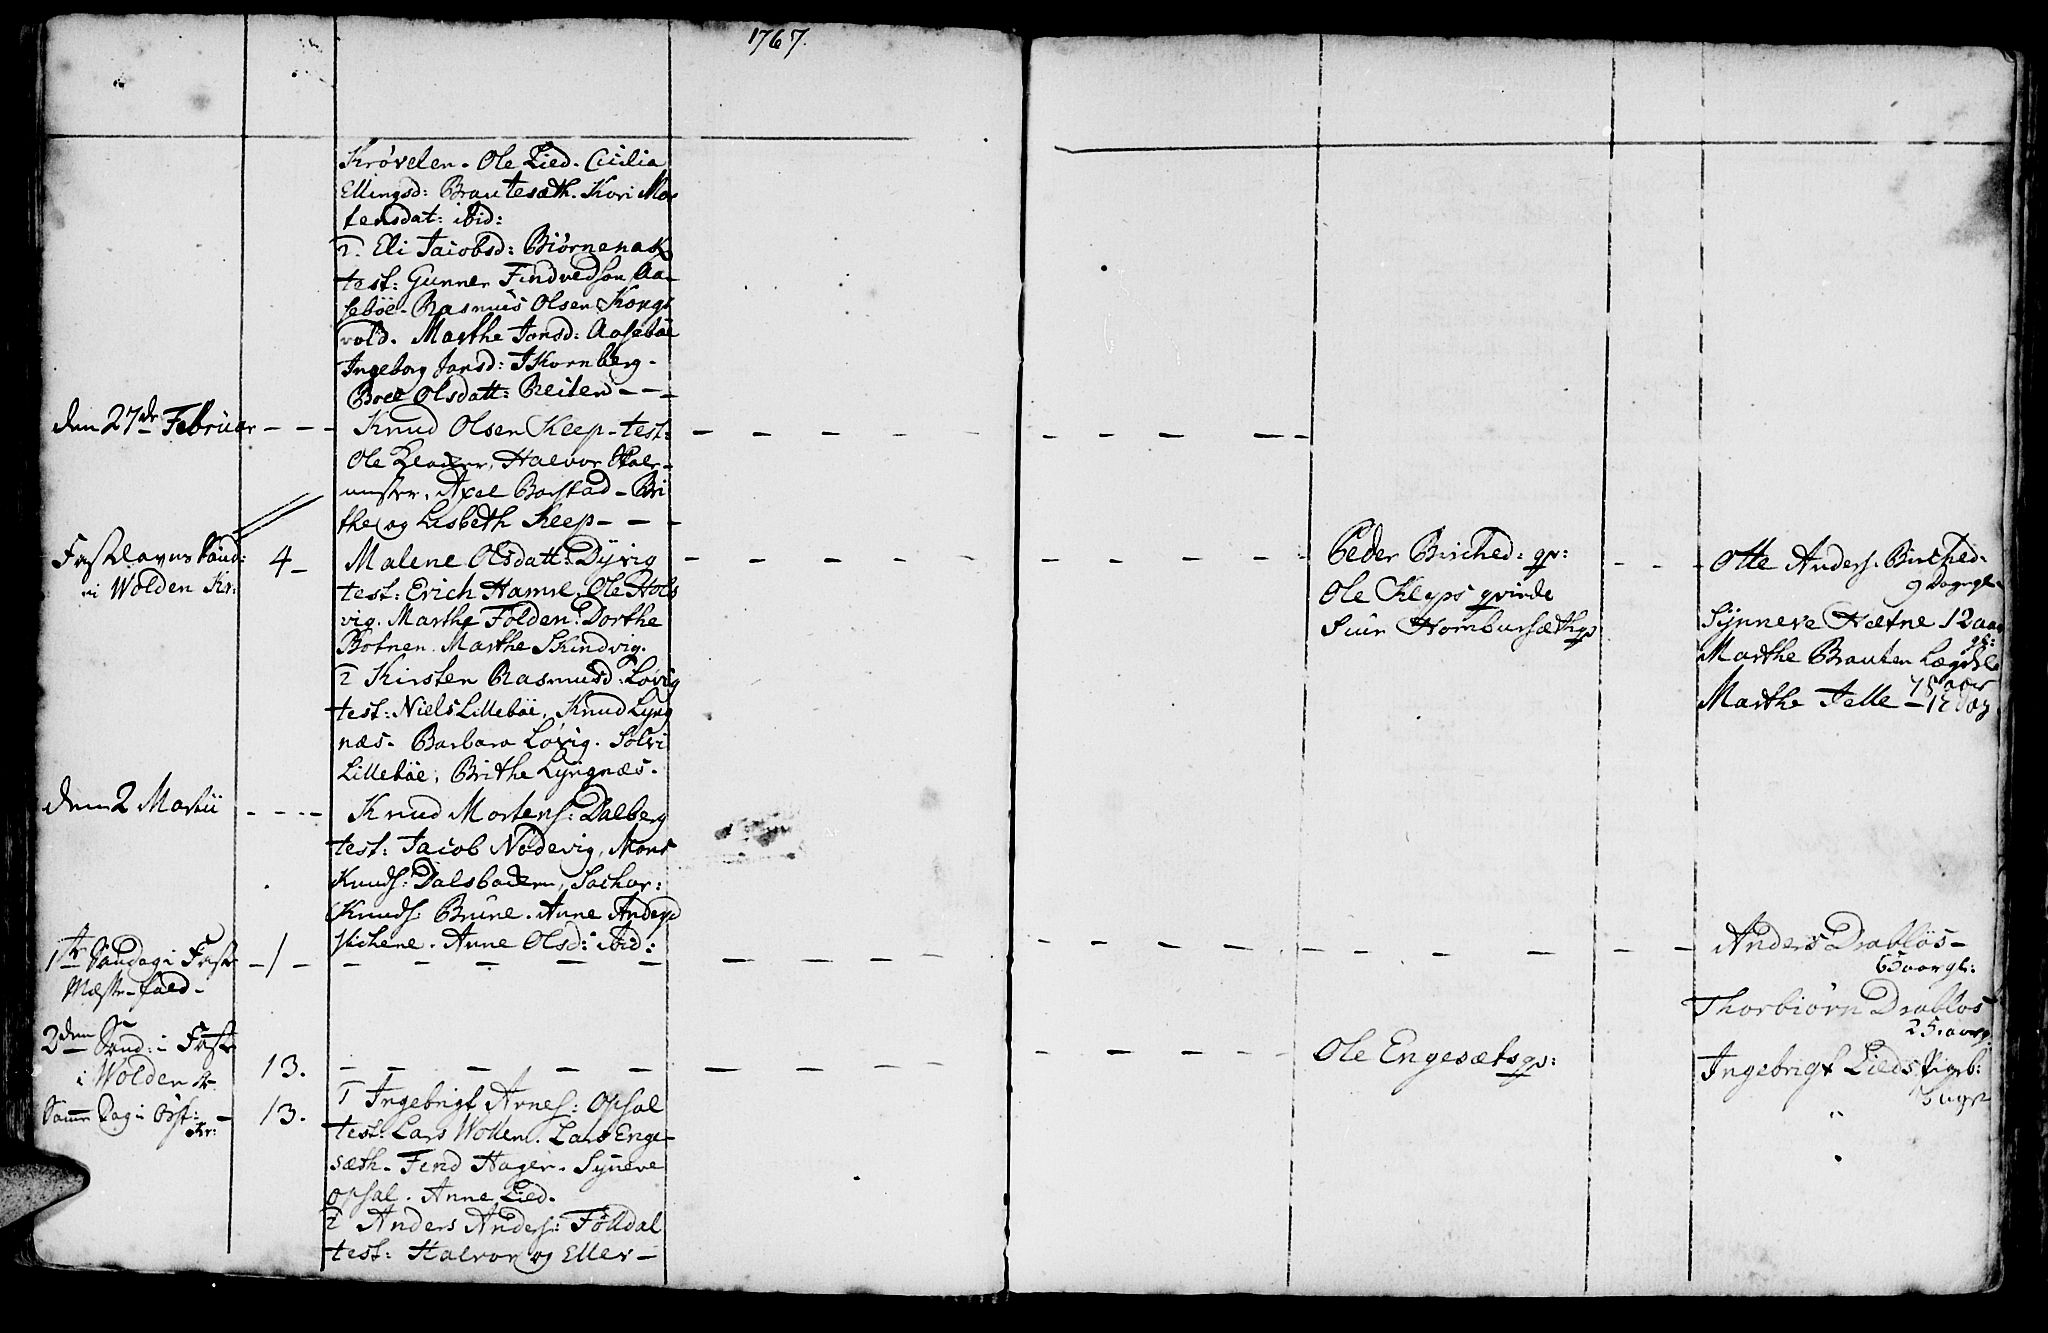 1767.
Krövelen. Ole Lied. Cicilia
Ellingsd: Brautesæth. Kari Mor
tensdat: ibid:
2. Eli Jacobsd: Biörnenak
test: Gunner Findvedson Aa-
seböe. Rasmus Olsen Kongs
vold. Marthe Jonsd: Aaseböe
Ingeborg Jonsd: Skornberg.
Boel Olsdatt: Reiten - - -
den 27de Februar - - - Knud Olsen Kleep - test:
Ole Halvor
Axel Barstad - Bri
the og Lisbeth Kleep - - -
Fastelavns Sönd: 4 - Malene Olsdatt: Dyrvig
i Wolden Kr: test: Erich Hamre. Ole Hols
vig. Marthe Folden. Dorthe
Botnen. Marthe Skindvig.
2 Kirsten Rasmusd: Lövig
test: Niels Lilleböe, Knud Lyng
næs. Barbara Lövig. Solvi
Lilleböe, Brithe Lyngnæs.
Peder Birched: qv:
Ole Kleps qvinde
Siur Hombursæth qv
Otte Anders. Birched.
9 Dage gl.
Synneve Netne 12 aar
gl:
Marthe Brauten Lægdsl
75 aar
Marthe Felle - 12 dag
den 2 Martii - - - - Knud Mortens: Dalberg
test: Jacob Nödevig, Mons
Knuds: Dalsbotten, Sachar:
Knuds: Brune. Anne Andersd
Kichene. Anne Olsd: ibid:
1te Söndag i Faste - 1 -
Mæsse-fald -
Anders Drablös -
65 aar gl:
Thorbiörn Drablos
25. aar g.
2den Sönd: i Faste
i Wolden Kr. 13.
Ole Engesæts qv:
Ingebrigt Lieds Pigeb:
3 uger
Samme Dag i Örst: - 13.
Kr:
1 Ingebrigt Arnes: Opsal
test: Lars Wollen. Lars Enge-
sæth. Find Hagen. Syneve
Opsal. Anne Lied.
2 Anders Anders: Fölldal
test: Halvor og Eller -